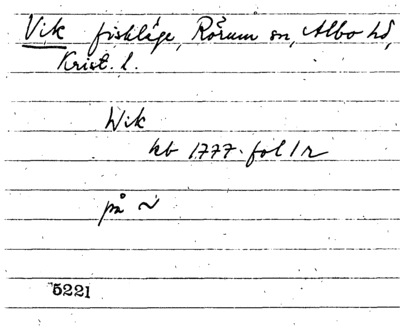 Vik fiskläge, Rörum sn, Albo hd,
Krist. l.
Wik
kb 1777. fol 1 r
på ~
5221